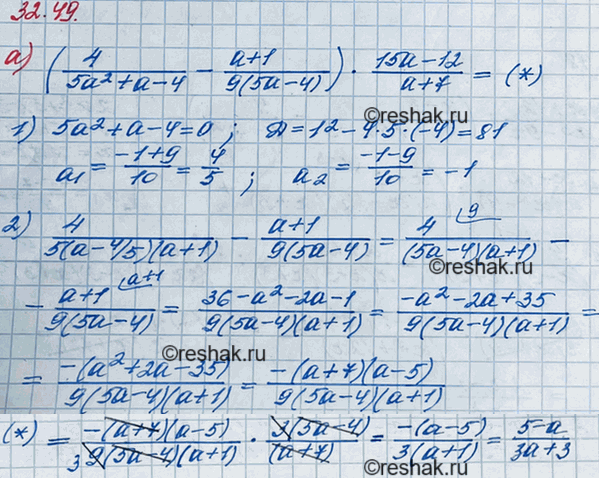 32.49.
а) (4/(5a²+a-4) - (a+1)/(9(5a-4))) · (15a-12)/(a+7) = (*)
©reshak.ru
1) 5a²+a-4=0 ; Д=1²-4·5·(-4)=81
a₁ = (-1+9)/10 = 4/5 ; a₂ = (-1-9)/10 = -1
2) 4/(5(a-4/5)(a+1)) - (a+1)/(9(5a-4)) = 4^{9}/((5a-4)(a+1)) -
©reshak.ru
- (a+1)^{a+1}/(9(5a-4)) = (36-a²-2a-1)/(9(5a-4)(a+1)) = (-a²-2a+35)/(9(5a-4)(a+1)) =
©reshak.ru
= -(a²+2a-35)/(9(5a-4)(a+1)) = -(a+7)(a-5)/(9(5a-4)(a+1))
(*) = -(a+7)(a-5)/(3 9(5a-4)(a+1)) · 3(5a-4)/(a+7) = -(a-5)/(3(a+1)) = (5-a)/(3a+3)
©reshak.ru